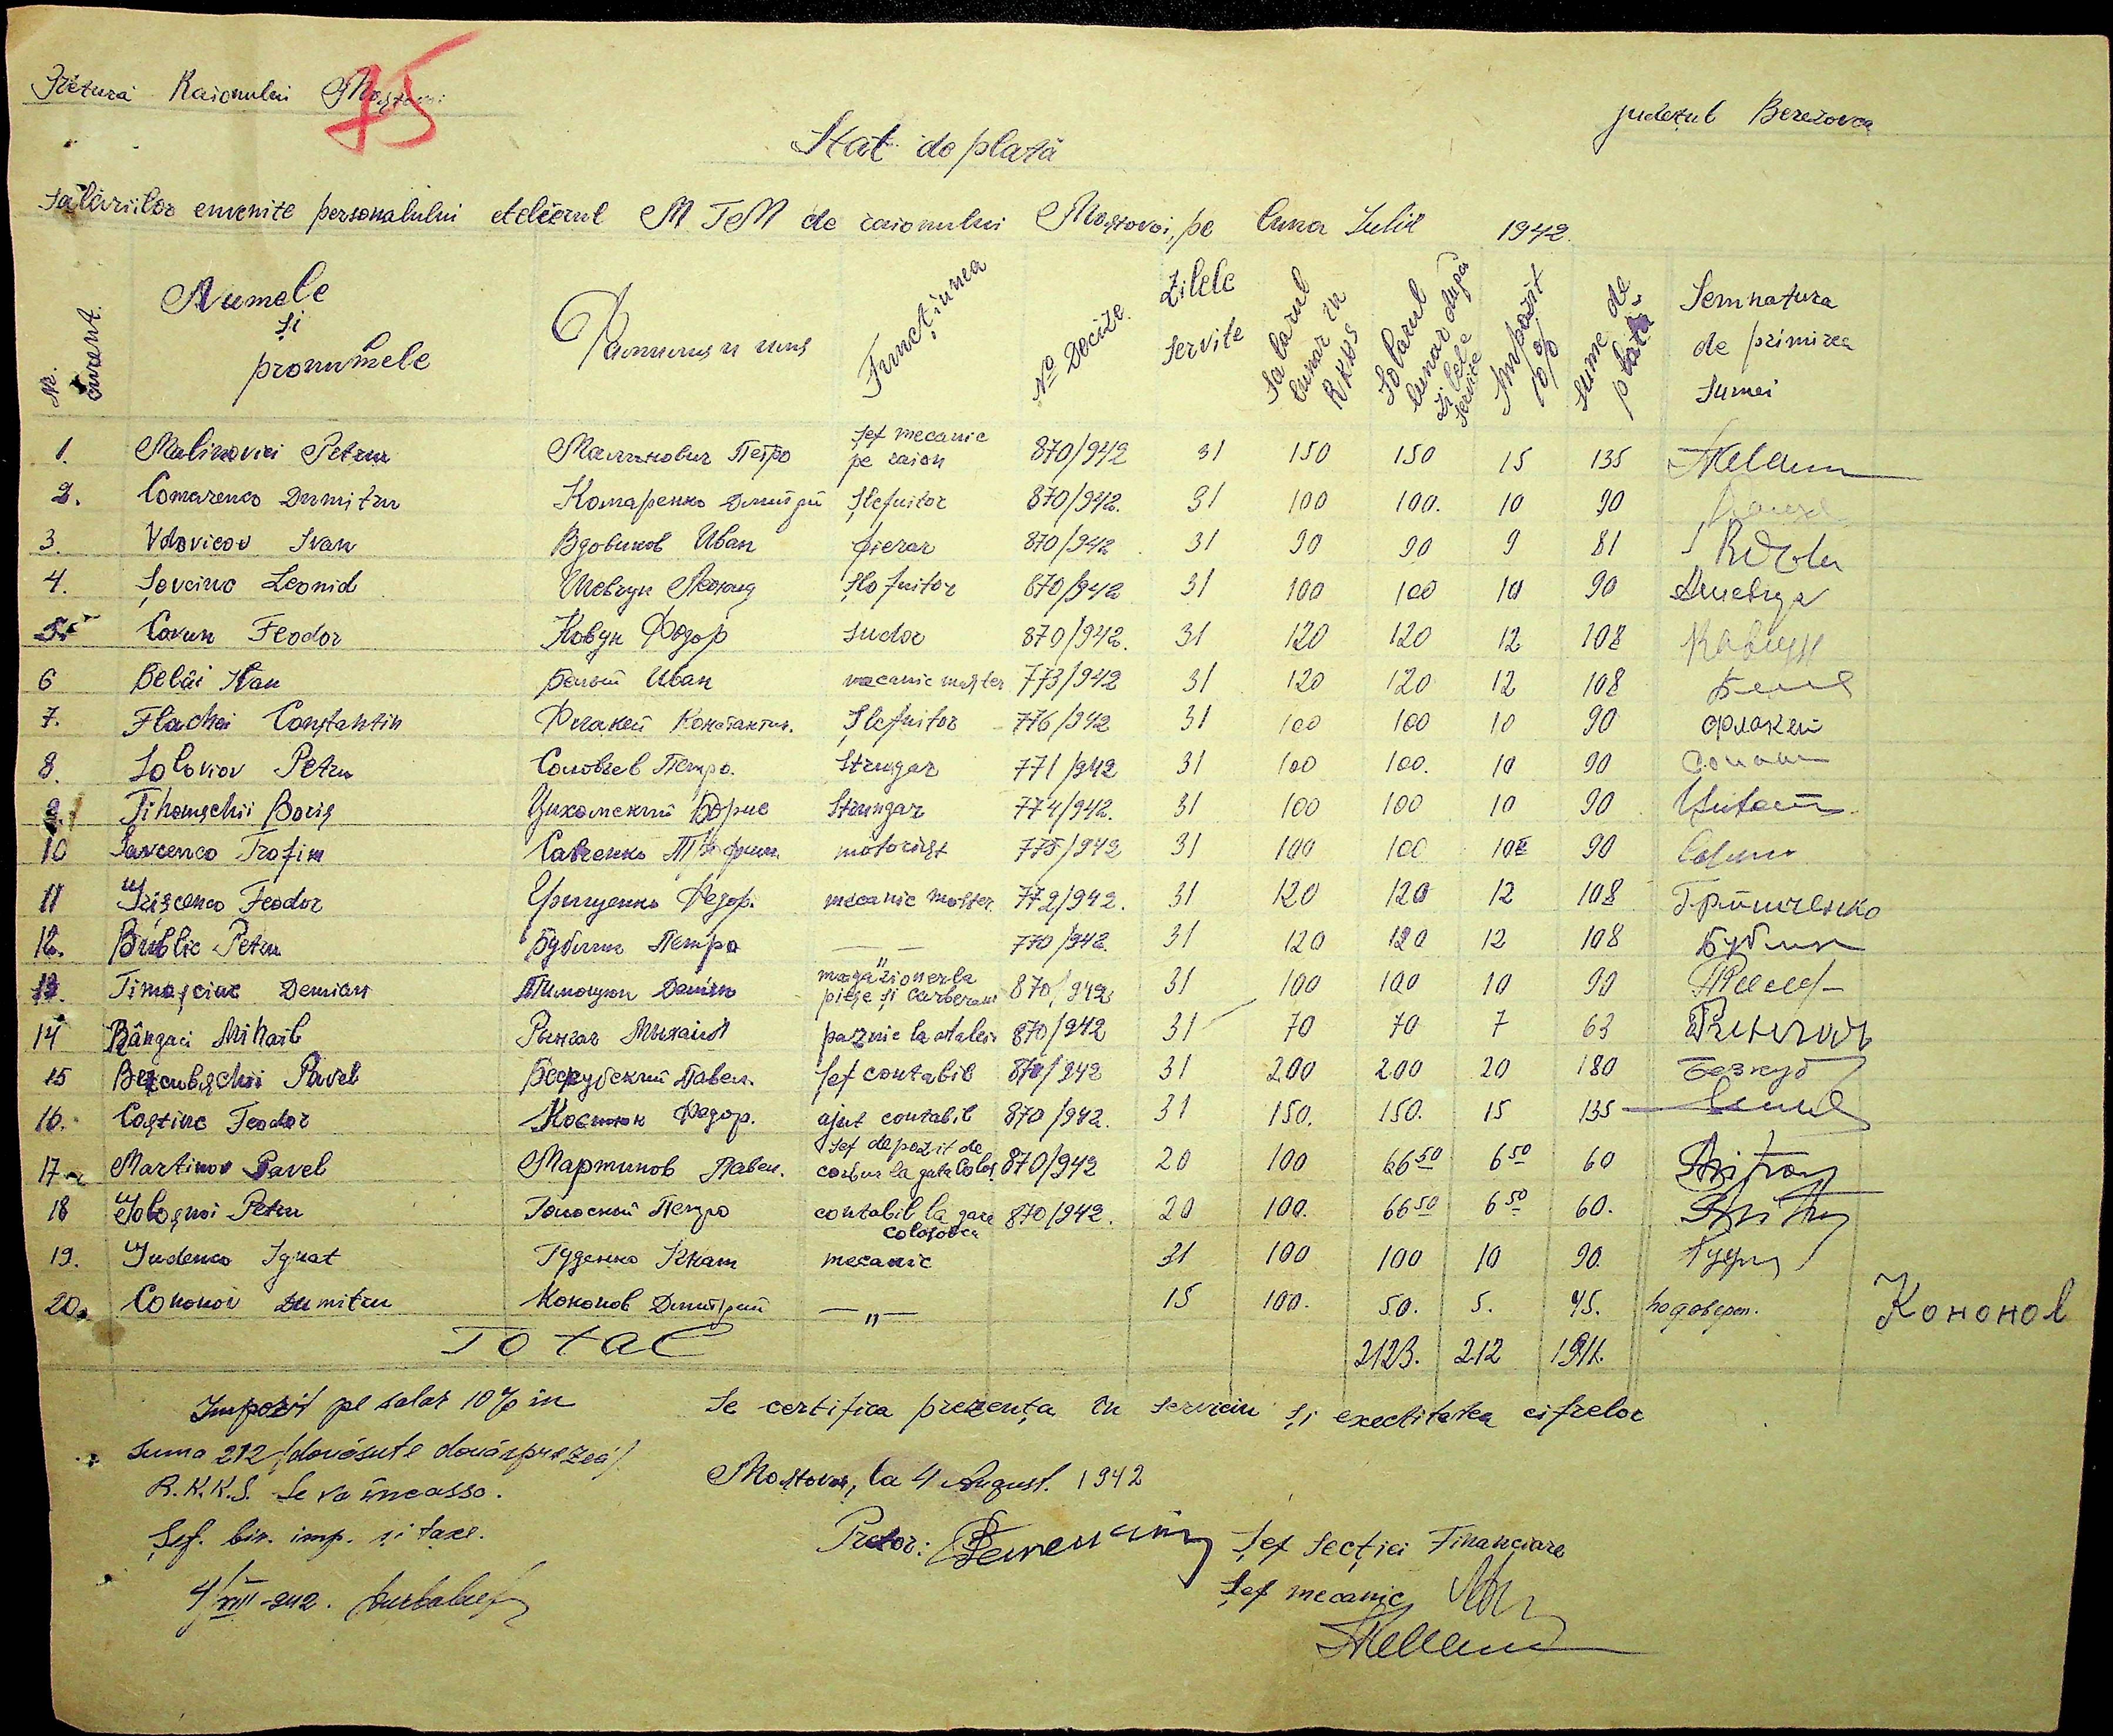 Pretura Raionului Mostovoi
75
județul Berezovca
Stat de plată
Salariilor cuvenite personalului atelierul MTM de raionului Mostovoi, pe luna Iulie 1942.
Nr. curent. Numele și pronumele Фамилия и имя Funcțiunea No Decize. Zilele servite Salarul lunar în RKKS Solarul lunar după zilele servite Impozit 10% Sume de plată Semnatura de primirea Sumei
1. Malinovici Petru Малинович Петро șef mecanic pe raion 870/942 31 150 150 15 135
2. Comarenco Dumitru Комаренко Дмитрий Șlefuitor 870/942. 31 100 100. 10 90
3. Vdovicov Ivan Вдовиков Иван fierar 870/942 31 90 90 9 81
4. Șovciuc Leonid Шевчук Леонид Șlofuitor 870/942 31 100 100 10 90
5. Covun Feodor Ковун Федор sudor 870/942. 31 120 120 12 108 Кавун
6 Belâi Ivan Белый Иван mecanic master 773/942 31 120 120 12 108
7. Flachei Constantin Флакей Константин. Șlefuitor 776/942 31 100 100 10 90 Флакей
8. Soloviov Petru Соловьев Петро. Strugar 771/942 31 100 100. 10 90
9. Tihomschii Boris Цихомский Борис Strungar 774/942. 31 100 100 10 90
10 Savcenco Trofim Савченко Трофим motorist 775/942 31 100 100 10 90
11 Grișcenco Feodor Грищенко Федор. mecanic master 772/942. 31 120 120 12 108 Грищенко
12. Bublic Petru Бублик Петро — " — 770/942. 31 120 120 12 108 Бублик
13. Timașciuc Demian Тимощук Демян magazioner la piese și carburant 870/942 31 100 100 10 90
14 Rângaci Mihail Рынгач Михаил paznic la atelier 870/942 31 70 70 7 63 Рингач
15 Bezcubschii Pavel Безкубский Павел. șef contabil 870/942 31 200 200 20 180 Безкуб
16. Costiuc Feodor Костюк Федор. ajut contabil 870/942. 31 150. 150. 15 135
17 Martinov Pavel Мартинов Павел. Șef depozit de carbur la gara Colos. 870/942 20 100 66 50 6 50 60
18 Golosnoi Petru Голосной Петро contabil la gare Colosovca 870/942. 20 100. 66 50 6 50 60.
19. Gudenco Ignat Гуденко Игнат mecanic 31 100 100 10 90.
20. Cononov Dumitru Кононов Дмитрий — " — 15 100. 50. 5. 45. по доверен. Кононов
Total 2123. 212 1911.
Impozit pe salar 10% în
suma 212 /douăsute douăsprezeă/
R.K.K.S. Se va incassa.
Șef. bir. imp. și taxe.
4/VIII-942.
Se certifica prezența în serviciu și exectitatea cifrelor
Mostovoi, la 4 August. 1942
Pretor:
Șef Secției Financiare
Șef mecanic